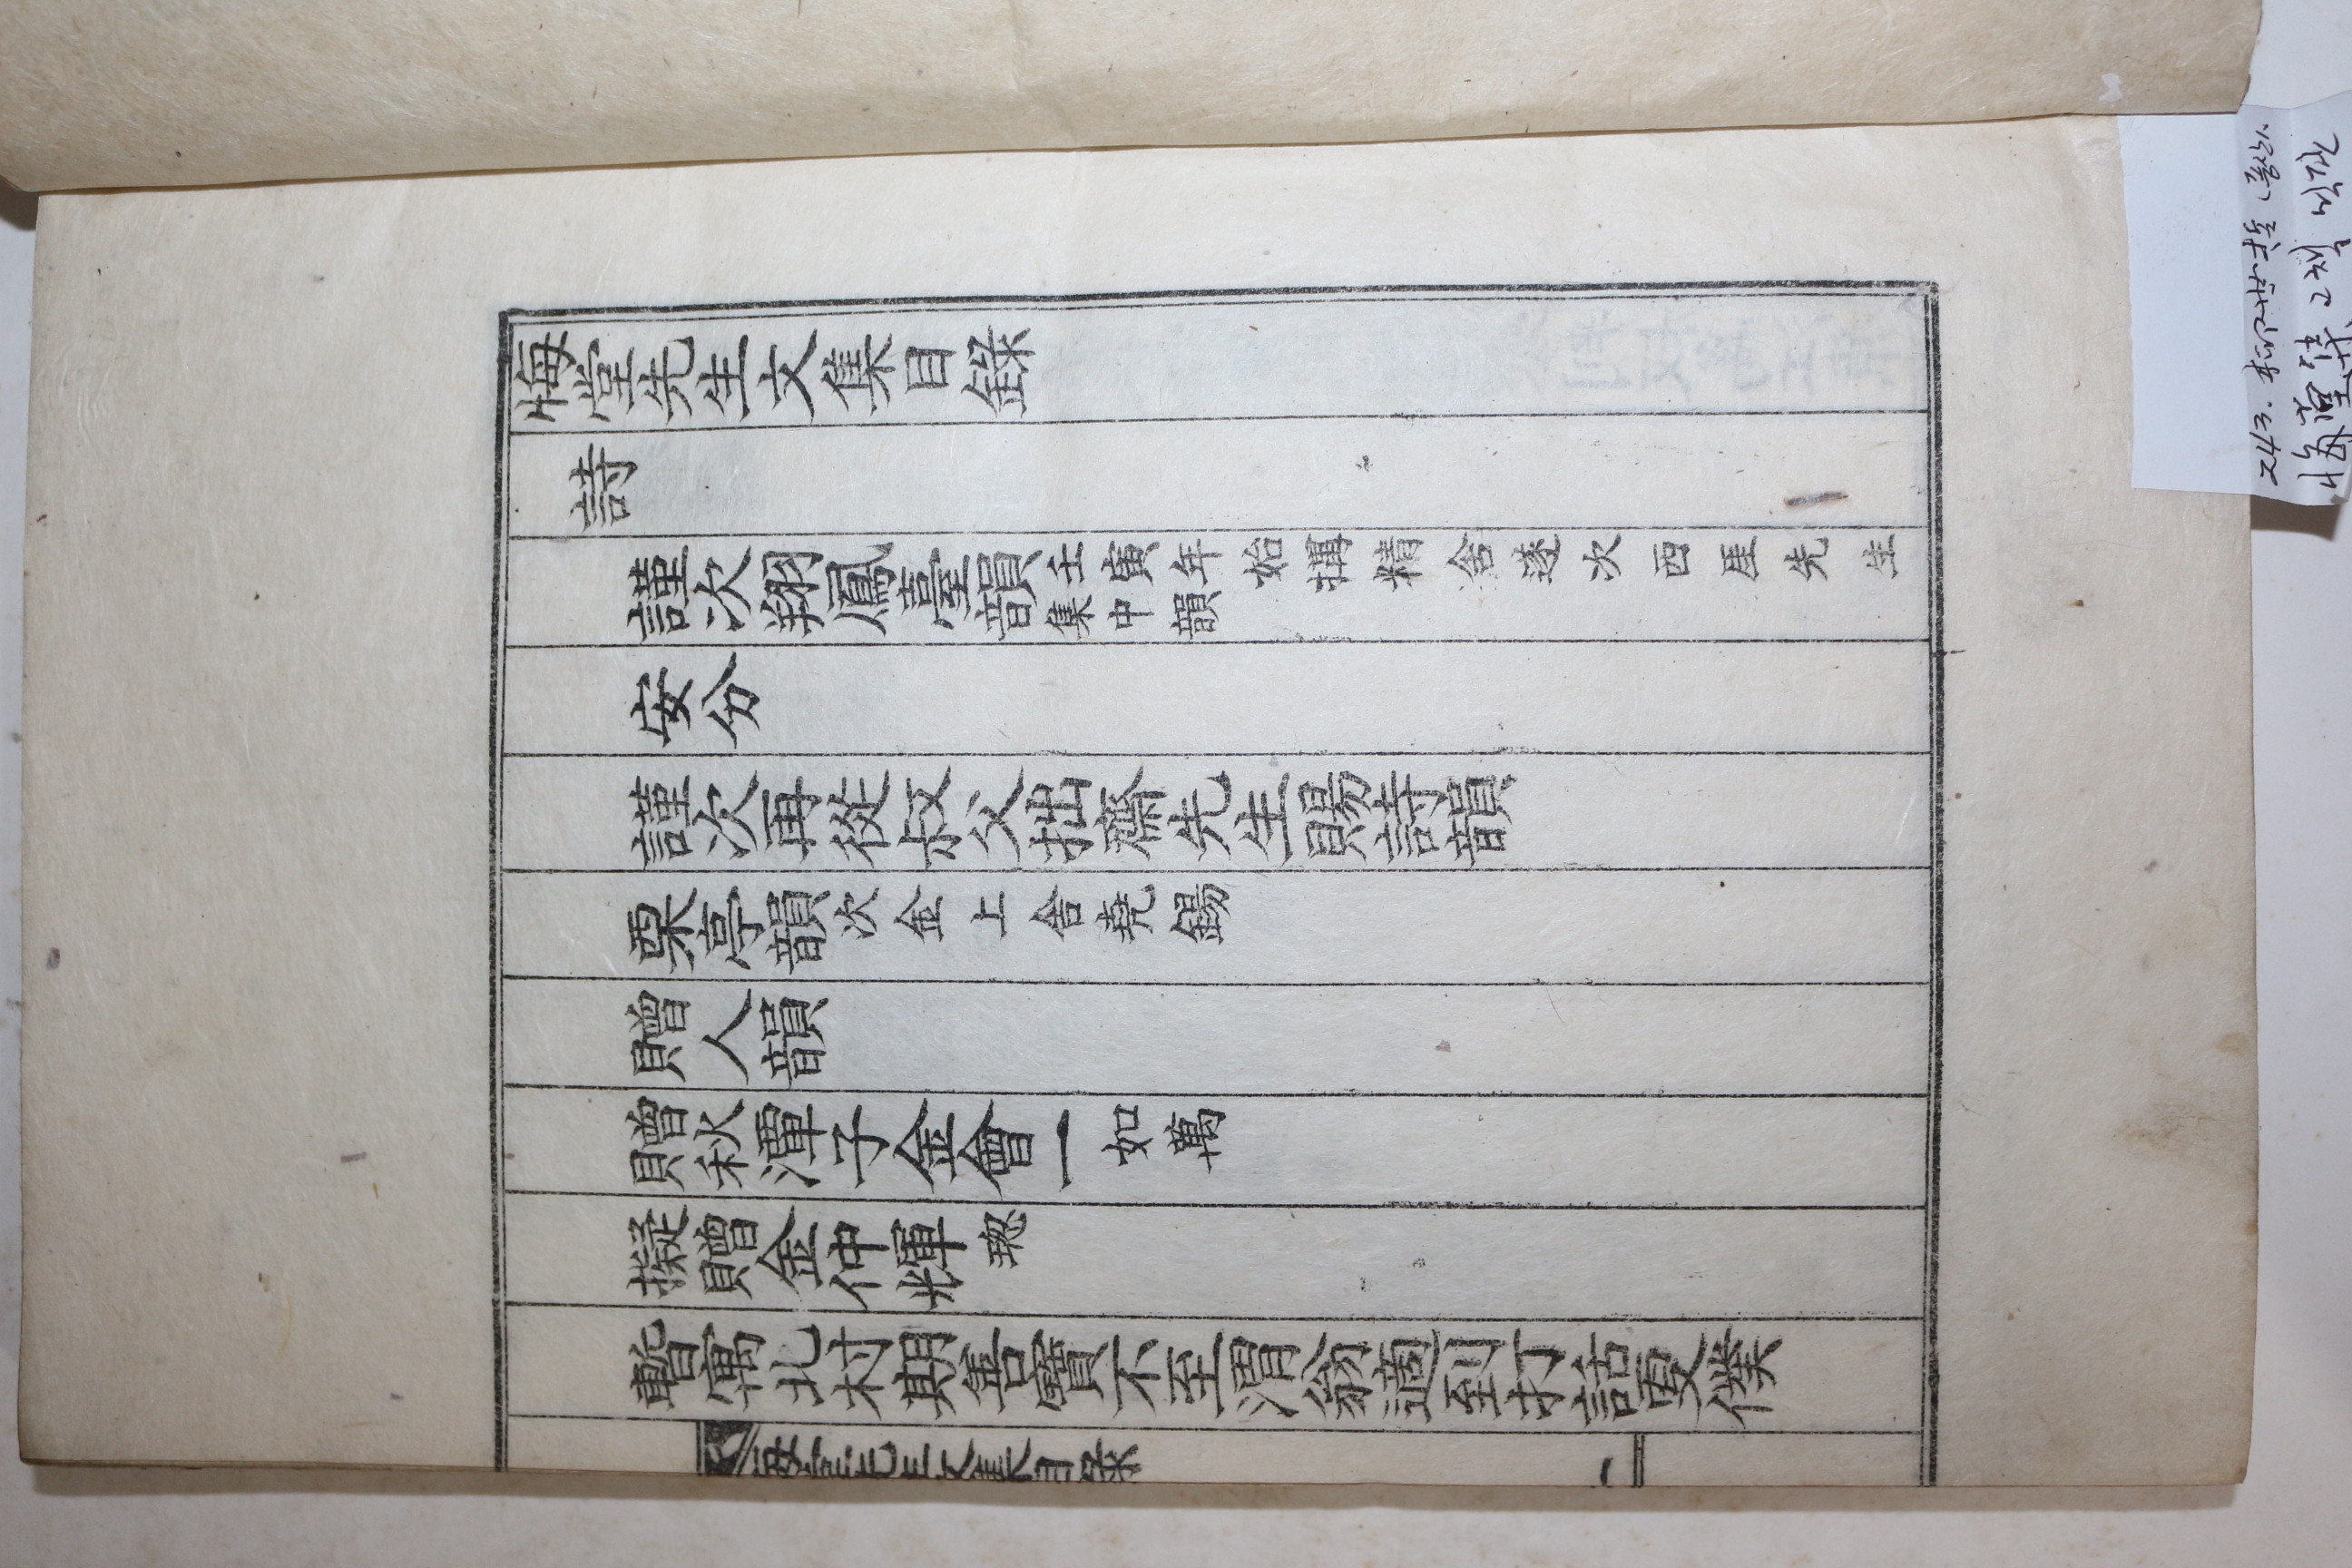 悔堂先生文集目錄
詩
謹次翔鳳臺韻 壬寅年始搆精舍遂次西厓先生
集中韻
安分
謹次再從叔父拙齋先生賜詩韻
栗亭韻 次金上舍堯錫
贈人韻
贈秋潭子金會一 如萬
擬贈金仲輝
暫寓北村期善寶不至渭翁適到打話更僕
悔堂先生文集目錄
一
243. 柳世哲 (풍산).
悔堂集 2책 목판